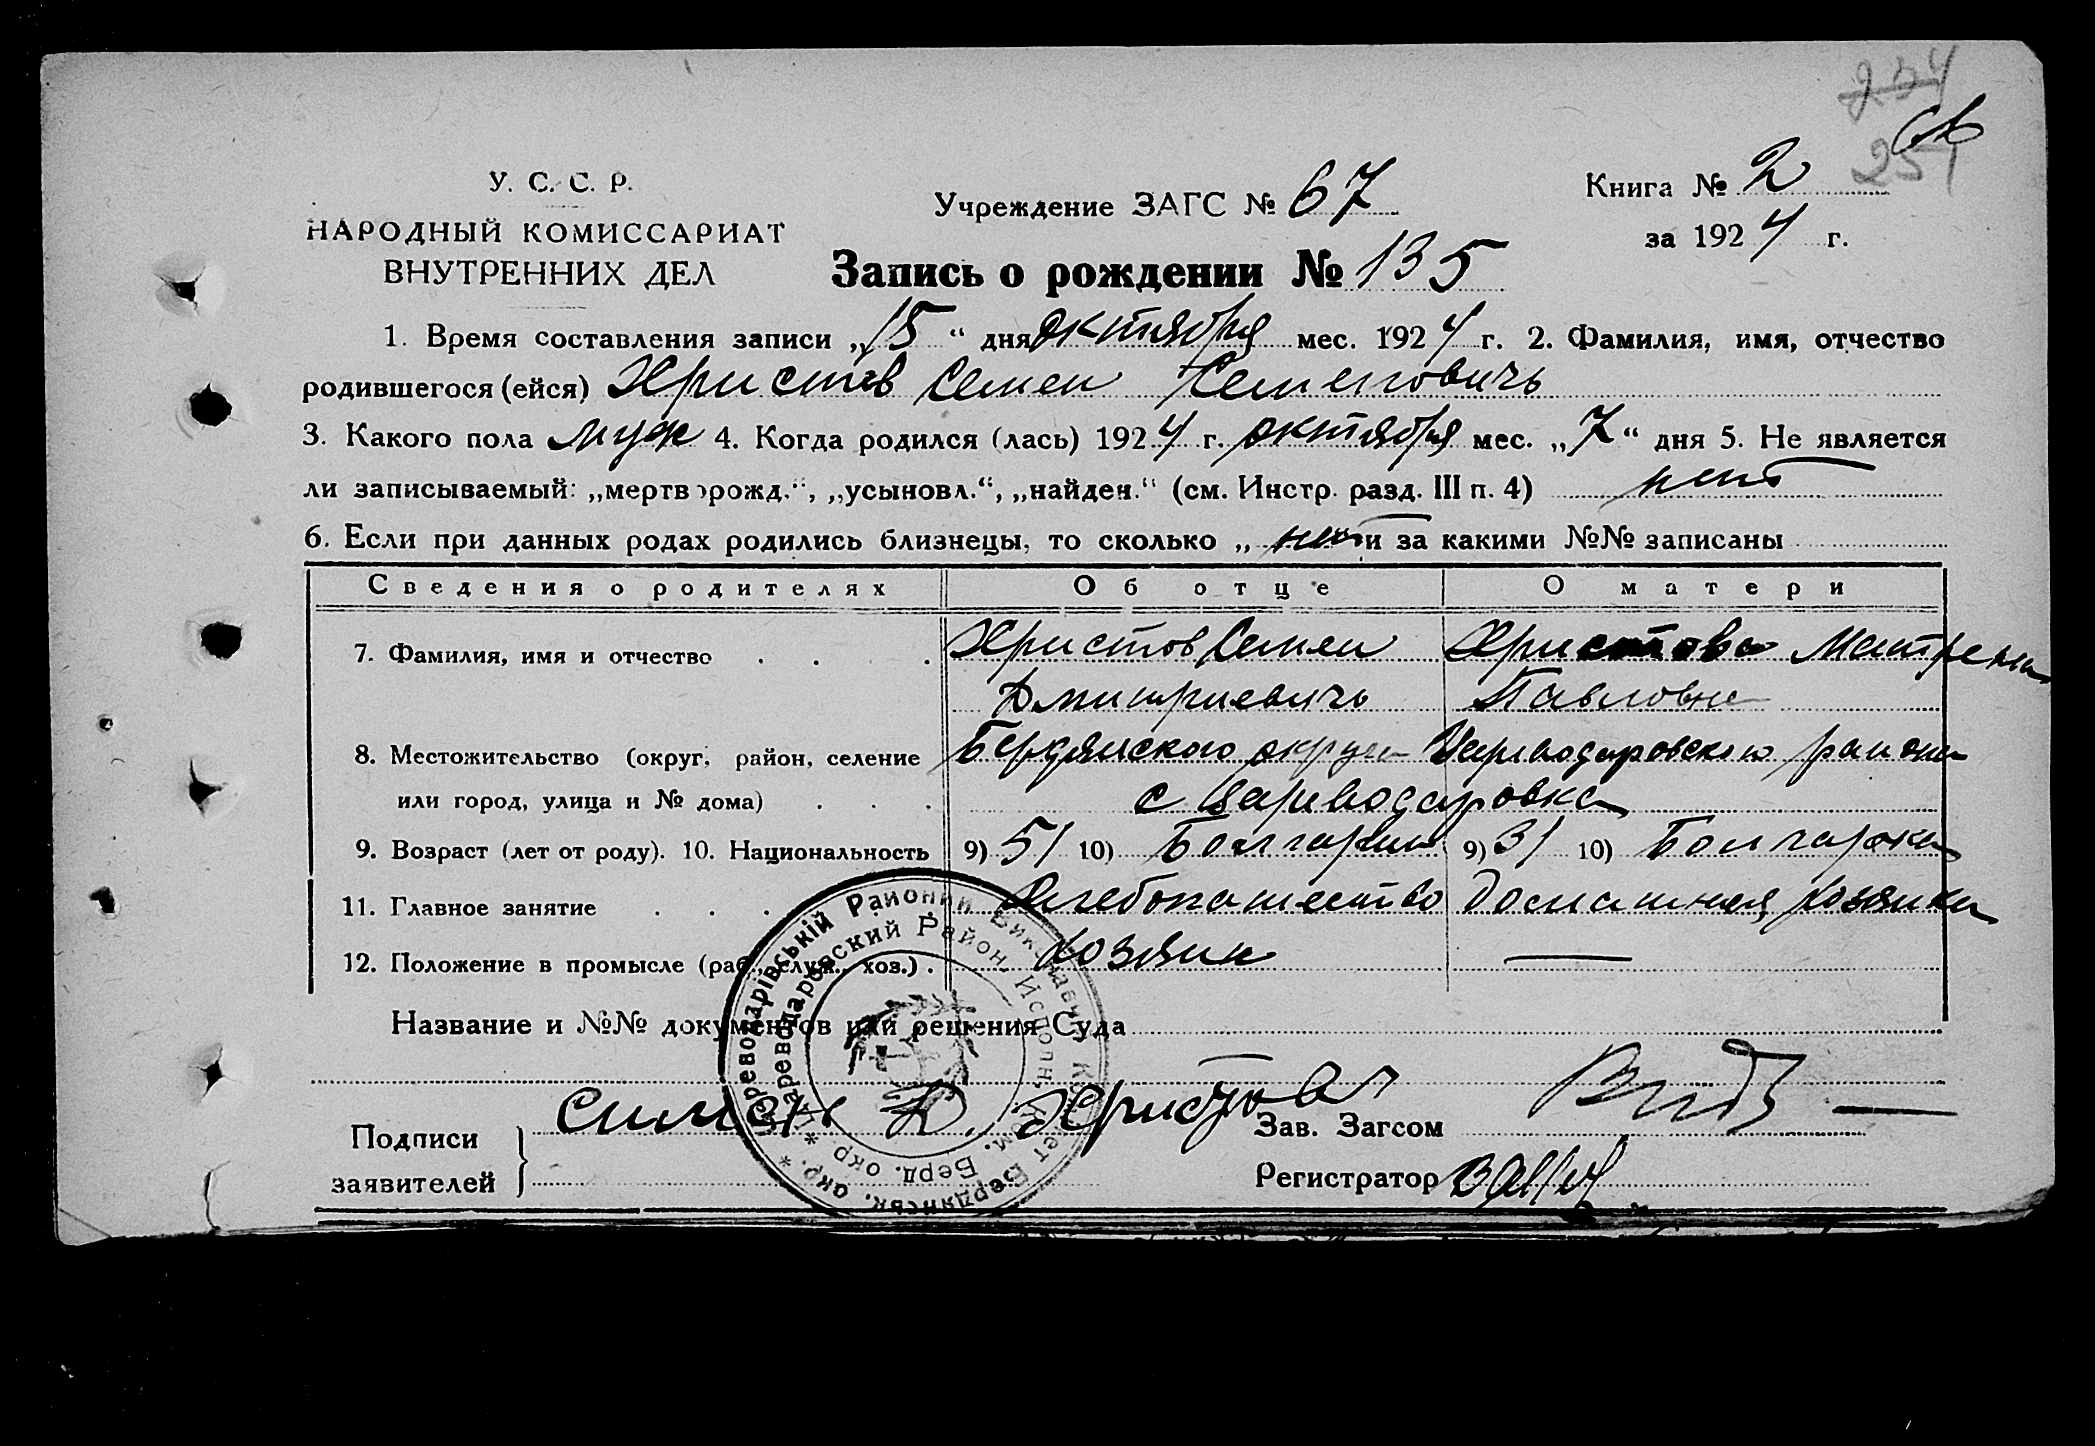 254
251
У. С. С. Р.
НАРОДНЫЙ КОМИССАРИАТ
ВНУТРЕННИХ ДЕЛ
Учреждение ЗАГС № 67
Книга № 2
за 1924 г.
Запись о рождении № 135
1. Время составления записи „15“ дня октября мес. 1924 г. 2. Фамилия, имя, отчество
родившегося (ейся) Христов Семен Семеновичь
3. Какого пола муж 4. Когда родился (лась) 1924 г. октября мес. „7“ дня 5. Не является
ли записываемый: „мертворожд.“, „усыновл.“, „найден.“ (см. Инстр. разд. III п. 4) нет
6. Если при данных родах родились близнецы, то сколько „ нет и за какими №№ записаны
Сведения о родителях Об отце О матери
7. Фамилия, имя и отчество . . . Христов Семен Христова Матрена
Дмитриевичь Павловна
8. Местожительство (округ, район, селение Бердянского округа Цареводаровского района
или город, улица и № дома) . . . с Цареводаровка
9. Возраст (лет от роду). 10. Национальность 9) 51 10) Болгарин 9) 31 10) Болгарка
11. Главное занятие . . . Хлебопашество Домашняя хозяйка
12. Положение в промысле (раб., служ., хоз.) . хозяин —
Название и №№ документов или решения Суда
Цареводарівський Районний Виконавчий Комітет Бердянськ. окр. *
Цареводаровский Район. Исполн. Ком. Берд. окр. *
Подписи
заявителей
Симен Д. Христова
Зав. Загсом
Регистратор